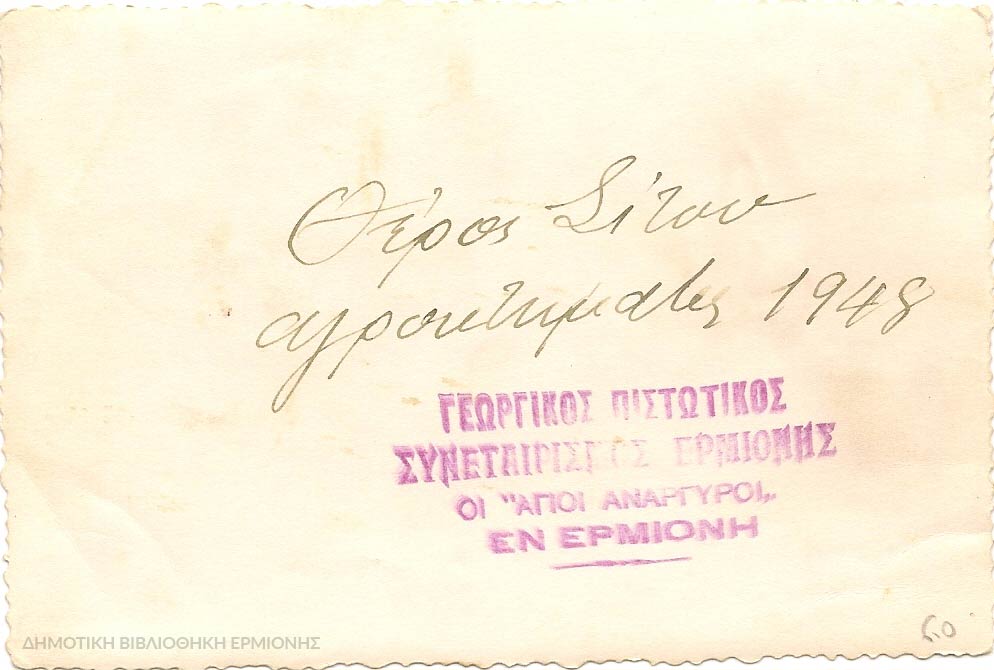 Θέρος Σίτου
αγροκτήματος 1948
ΓΕΩΡΓΙΚΟΣ ΠΙΣΤΩΤΙΚΟΣ
ΣΥΝΕΤΑΙΡΙΣΜΟΣ ΕΡΜΙΟΝΗΣ
ΟΙ "ΑΓΙΟΙ ΑΝΑΡΓΥΡΟΙ„
ΕΝ ΕΡΜΙΟΝΗ
60
ΔΗΜΟΤΙΚΗ ΒΙΒΛΙΟΘΗΚΗ ΕΡΜΙΟΝΗΣ